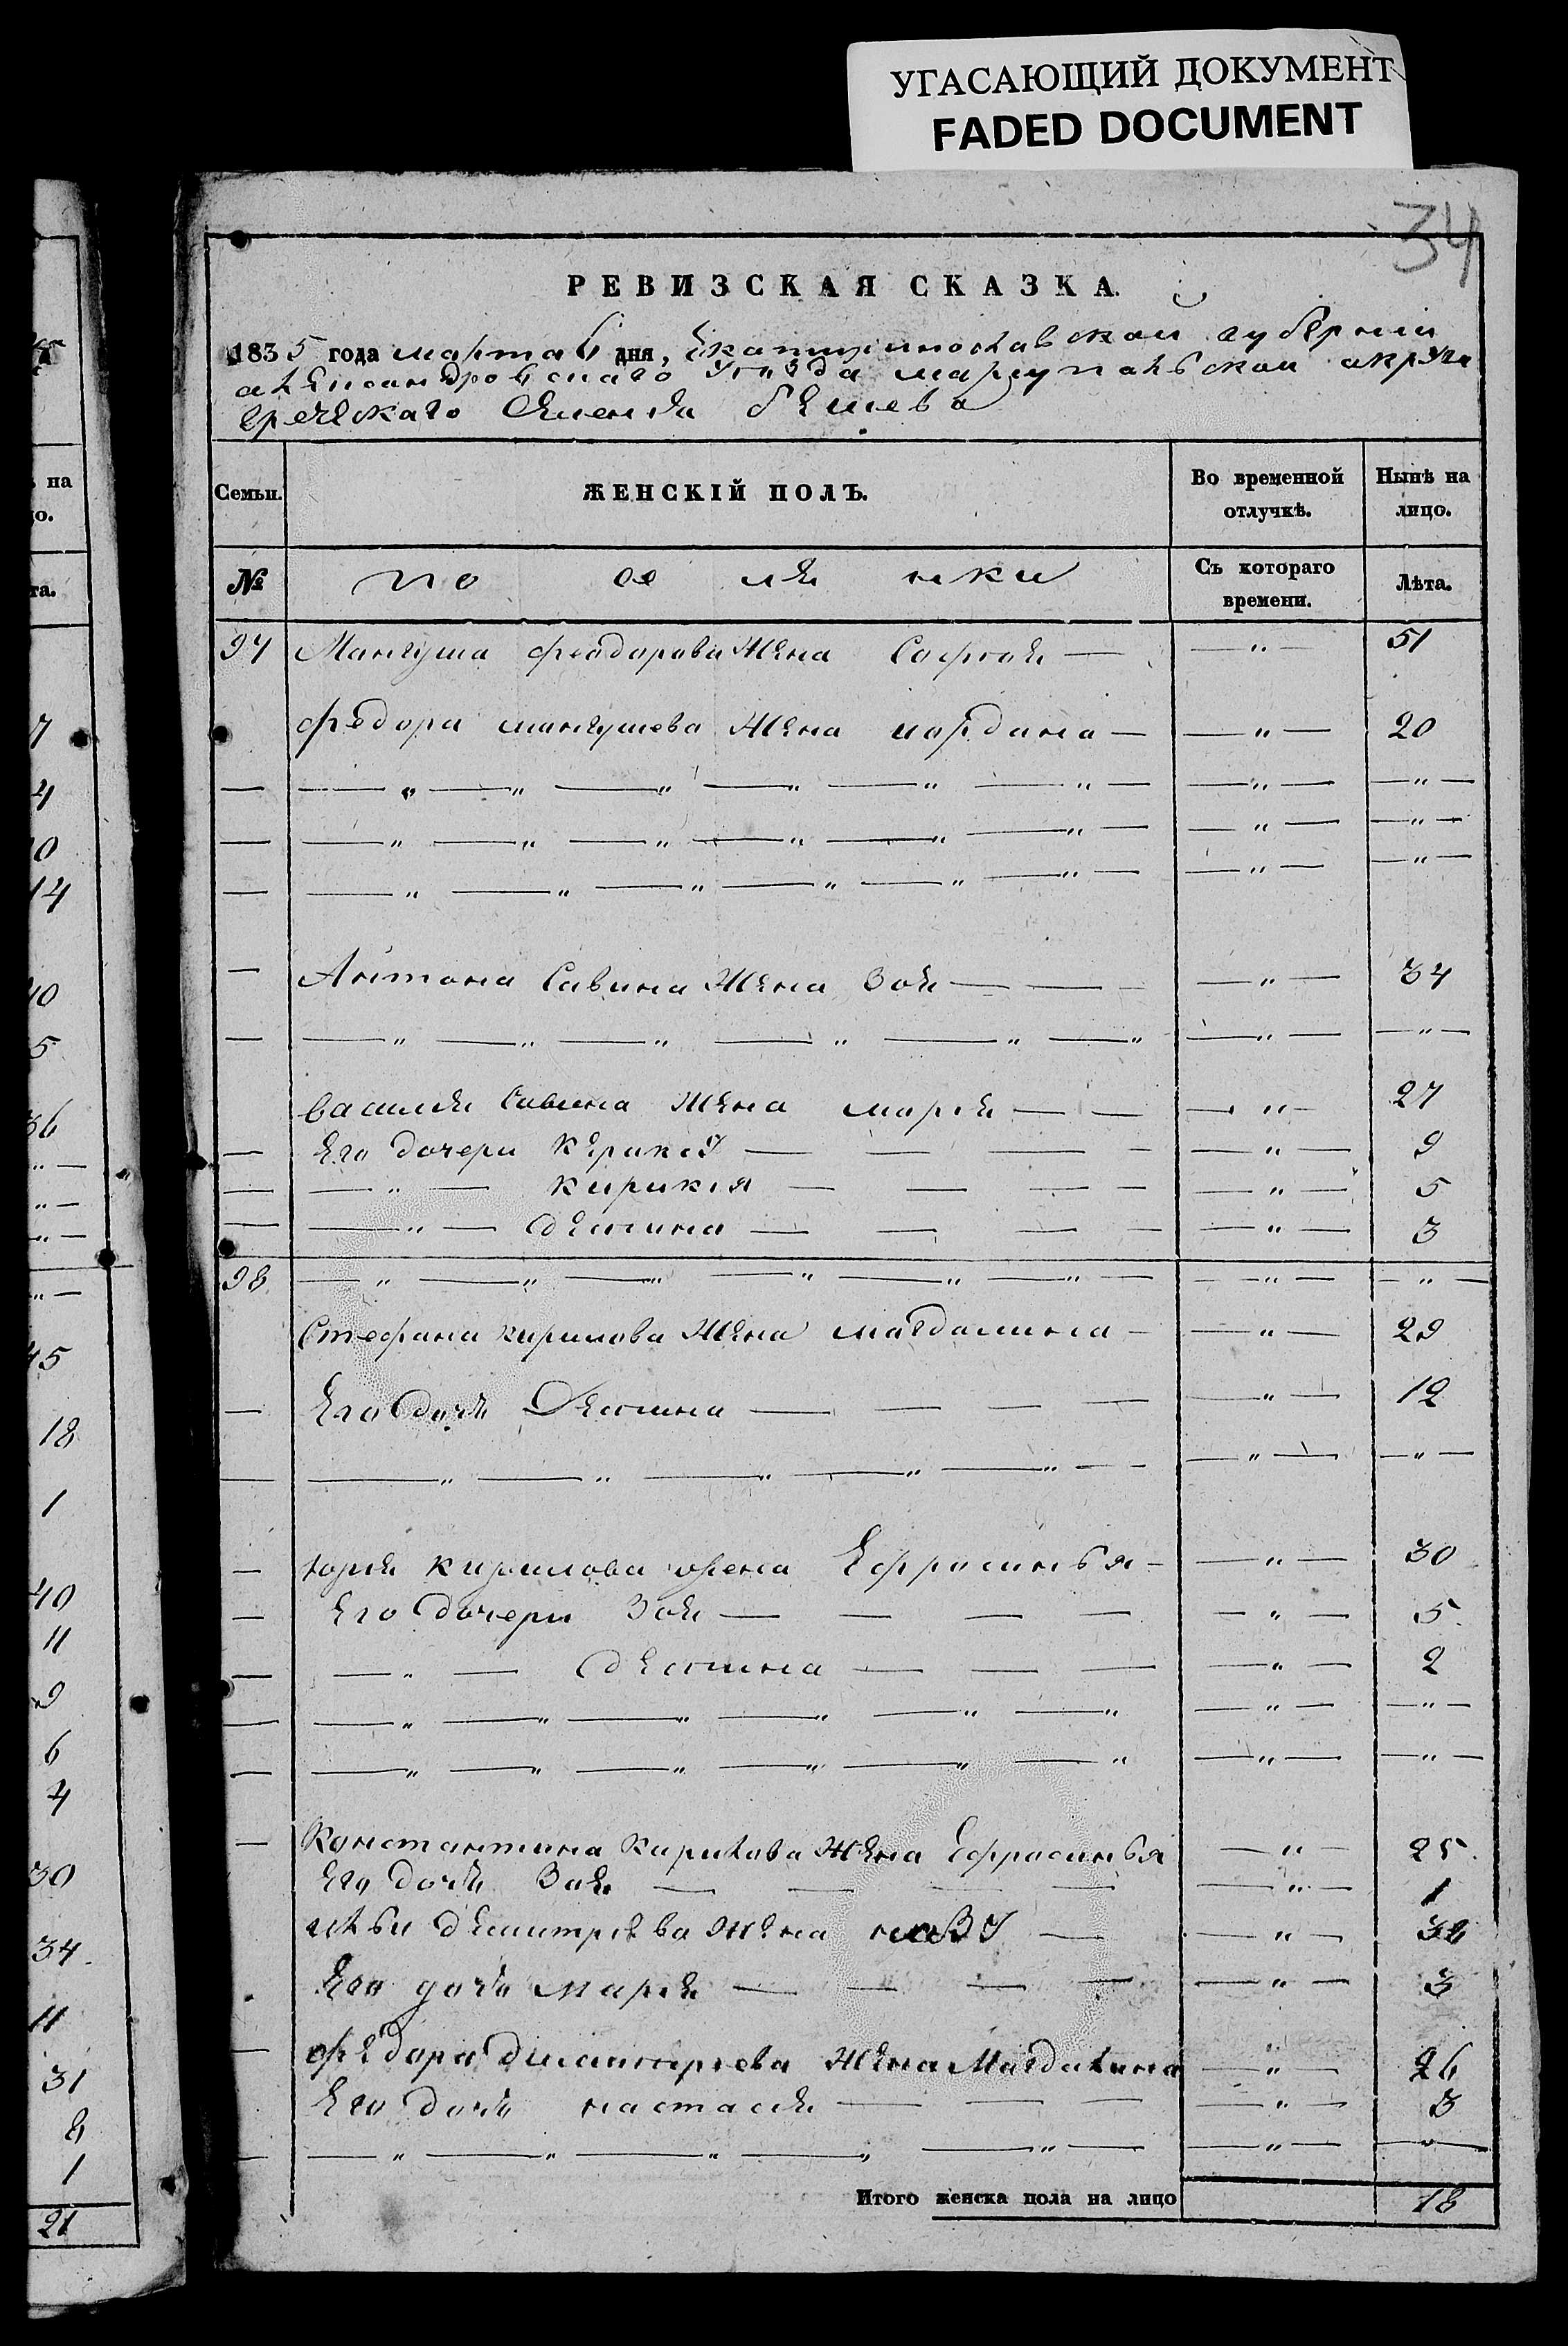 УГАСАЮЩИЙ ДОКУМЕНТ
FADED DOCUMENT
34
РЕВИЗСКАЯ СКАЗКА.
1835 года марта 6 дня, Екатеринославской губернии
александровскаго уезда мариупольской округи
греческаго селения бешева
Семьи. ЖЕНСКІЙ ПОЛЪ. Во временной отлучкѣ. Нынѣ на лицо.
№ поселянки Съ котораго времени. Лѣта.
97 Мангуша феодорова жена София — — " — 51
федора мангушева жена иордана — — " — 20
— — " — " — " — " — " — " — — " — — " —
— — " — " — " — " — " — " — — " — — " —
— — " — " — " — " — " — " — — " — — " —
— Антона Савина жена Зоя — — — — " — 34
— — " — " — " — " — " — " — " — — " —
василия Савина жена мария — — — " — 27
— Его дочери — — — — — " — 9
— — " — кирикия — — — — — " — 5
— — " — деспина — — — — — " — 3
98 — " — " — " — " — " — " — — " — — " —
Стефана кирилова жена магдалина — — " — 29
— Его дочь Деспина — — — — — " — 12
— — " — " — " — " — " — — — " — — " —
— юрия кирилова жена Ефросинья — — " — 30
— Его дочери Зоя — — — — — " — 5
— — " — деспина — — — — " — 2
— — " — " — " — " — " — " — " — — " —
— — " — " — " — " — " — " — " — — " —
— Константина Кирилова жена Ефросинья — " — 25
Его дочь Зоя — — — — — " — 1
ильи дмитриева жена — — " — 32
Его дочь мария — — — — — " — 3
— федора дмитриева жена Магдалина — " — 26
Его дочь настасия — — — — " — 3
— — " — " — " — " — " — — " — — " —
Итого женска пола на лицо 18
на
о.
та.
7
4
0
14
40
5
36
" —
" —
" —
" —
45
18
1
40
11
9
6
4
30
34.
11
31
8
1
21